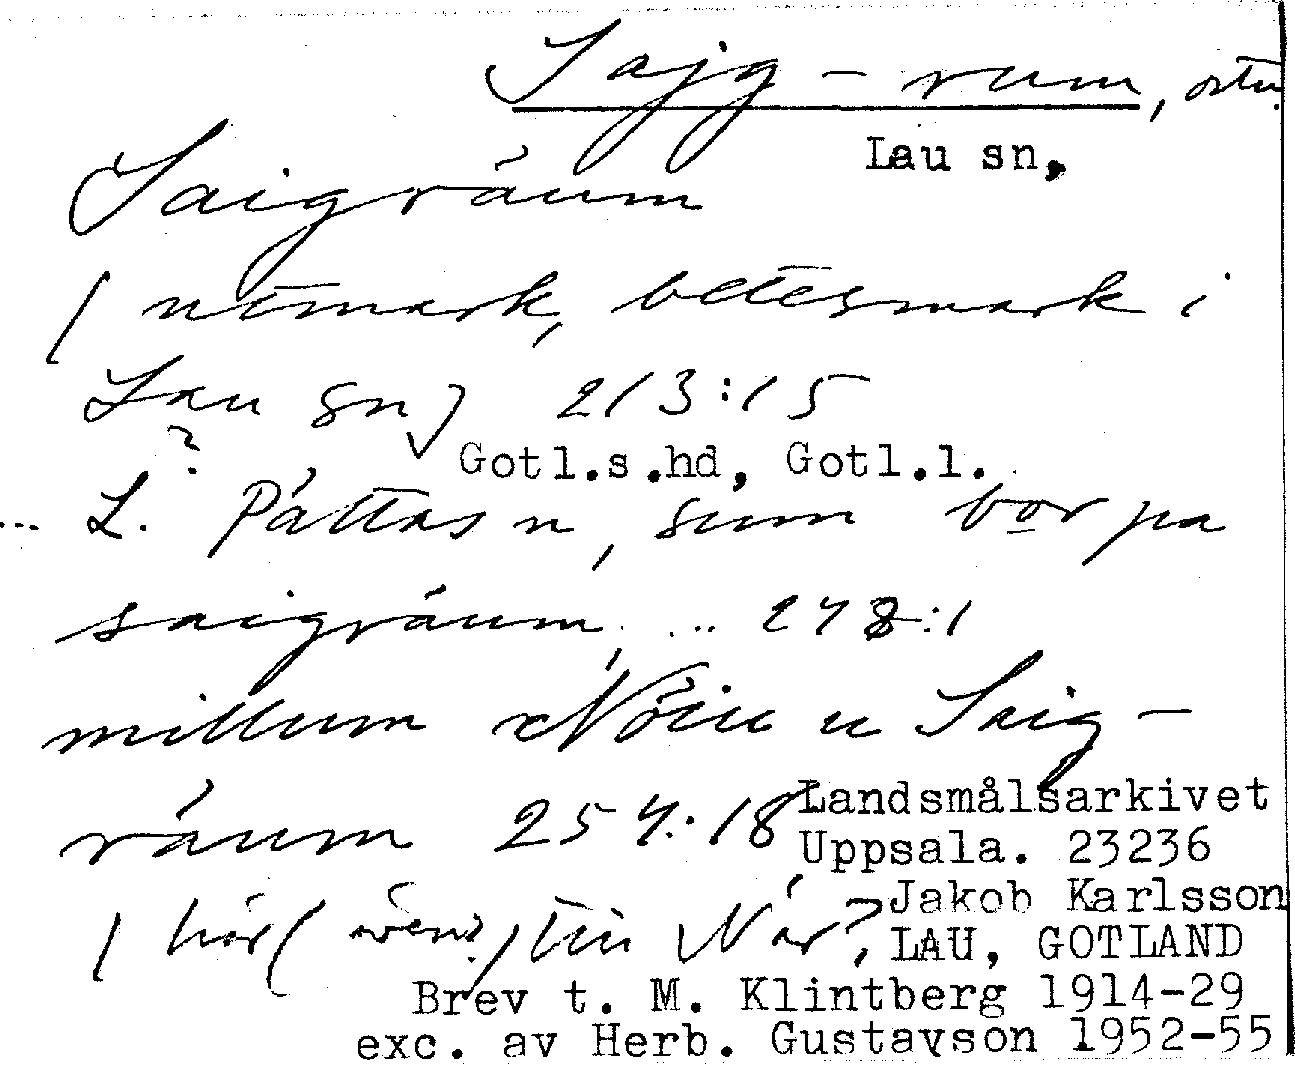 Sajg-rum, ortn.
Lau sn,
Saigräum
/ utmark, betesmark i
Lau sn) 213:15
?
Gotl.s.hd, Gotl.l.
... L. Påttas n, sum bor pa
saigräum, ... 248:1
millum xNöiu u Saig-
räum 254:18
Landsmålsarkivet
Uppsala. 23236
/ hör (även?) till När?
Jakob Karlsson
LAU, GOTLAND
Brev t. M. Klintberg 1914-29
exc. av Herb. Gustavson 1952-55